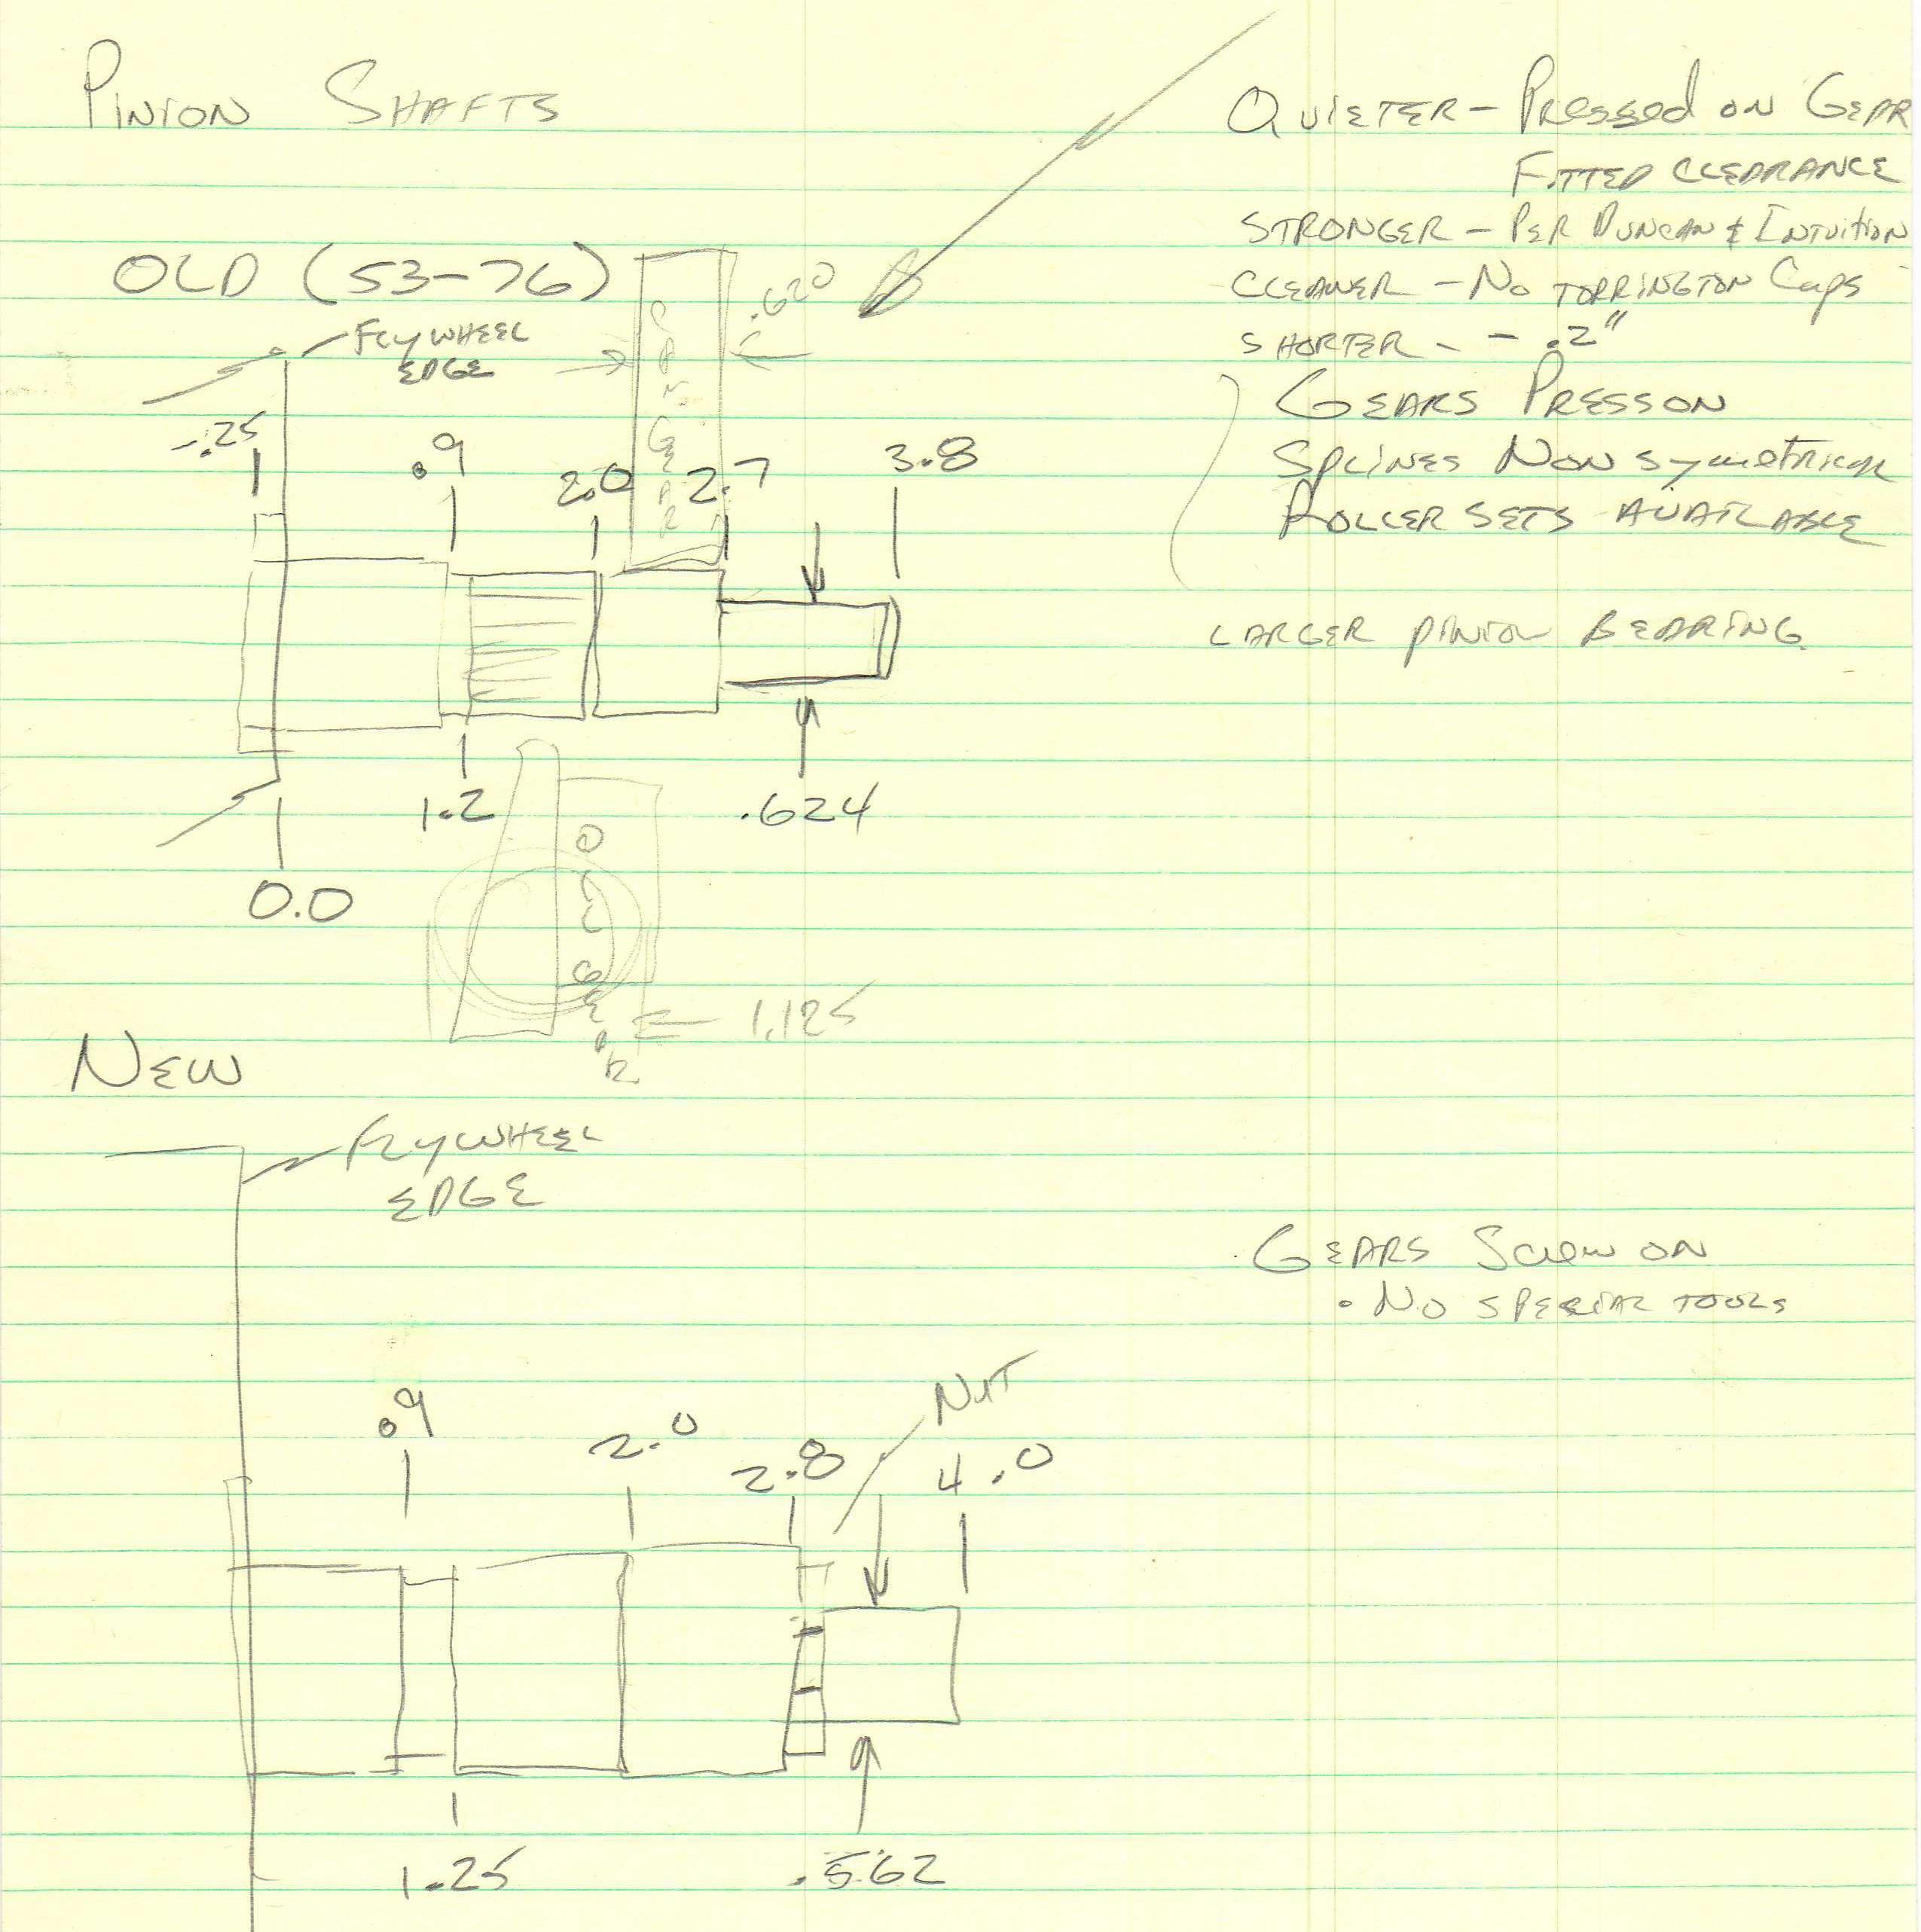 PINION SHAFTS
QUIETER - PRESSED ON GEAR
FITTED CLEARANCE
STRONGER - PER DUNCAN & INTUITION
CLEANER - NO TORRINGTON CAPS
SHORTER - - .2"
GEARS PRESS ON
SPLINES NON SYMETRICAL
ROLLER SETS AVAILABLE
LARGER PINION BEARING
OLD (53-76)
FLYWHEEL
EDGE
CAM GEAR
.620
-.25
.9
2.0
2.7
3.8
1.2
.624
0.0
OIL GEAR
1.125
NEW
FLYWHEEL
EDGE
GEARS SCREW ON
• NO SPECIAL TOOLS
NUT
.9
2.0
2.8
4.0
1.25
.562